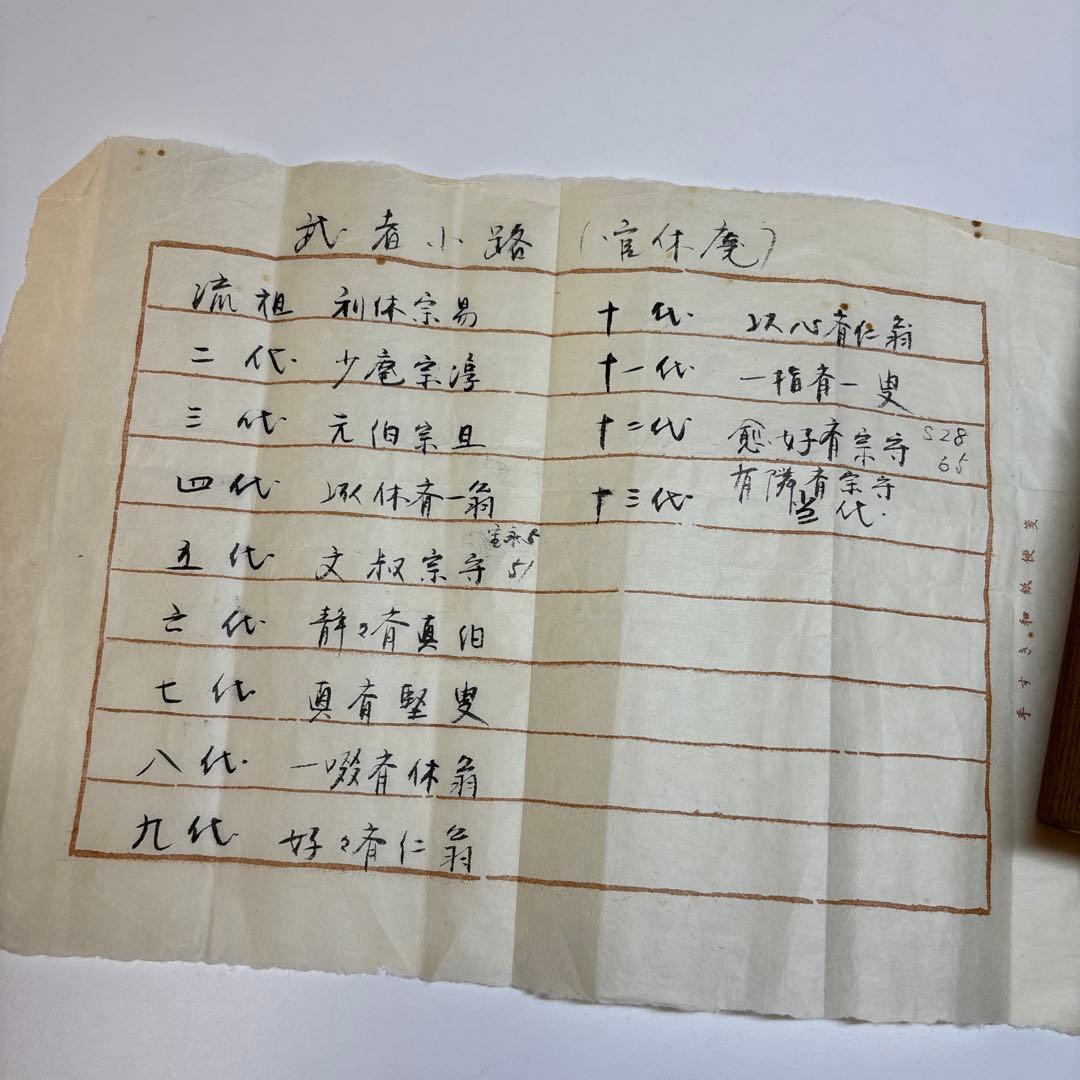 武者小路 (官休庵)
流祖 利休宗易
二代 少庵宗淳
三代 元伯宗旦
四代 似休斎一翁
宝永5
五代 文叔宗守 51
六代 静々斎真伯
七代 真斎堅叟
八代 一啜斎休翁
九代 好々斎仁翁
十代 以心斎仁翁
十一代 一指斎一叟
十二代 愈好斎宗守 S28
65
十三代 有隣斎宗守
当代
手すき和紙便箋